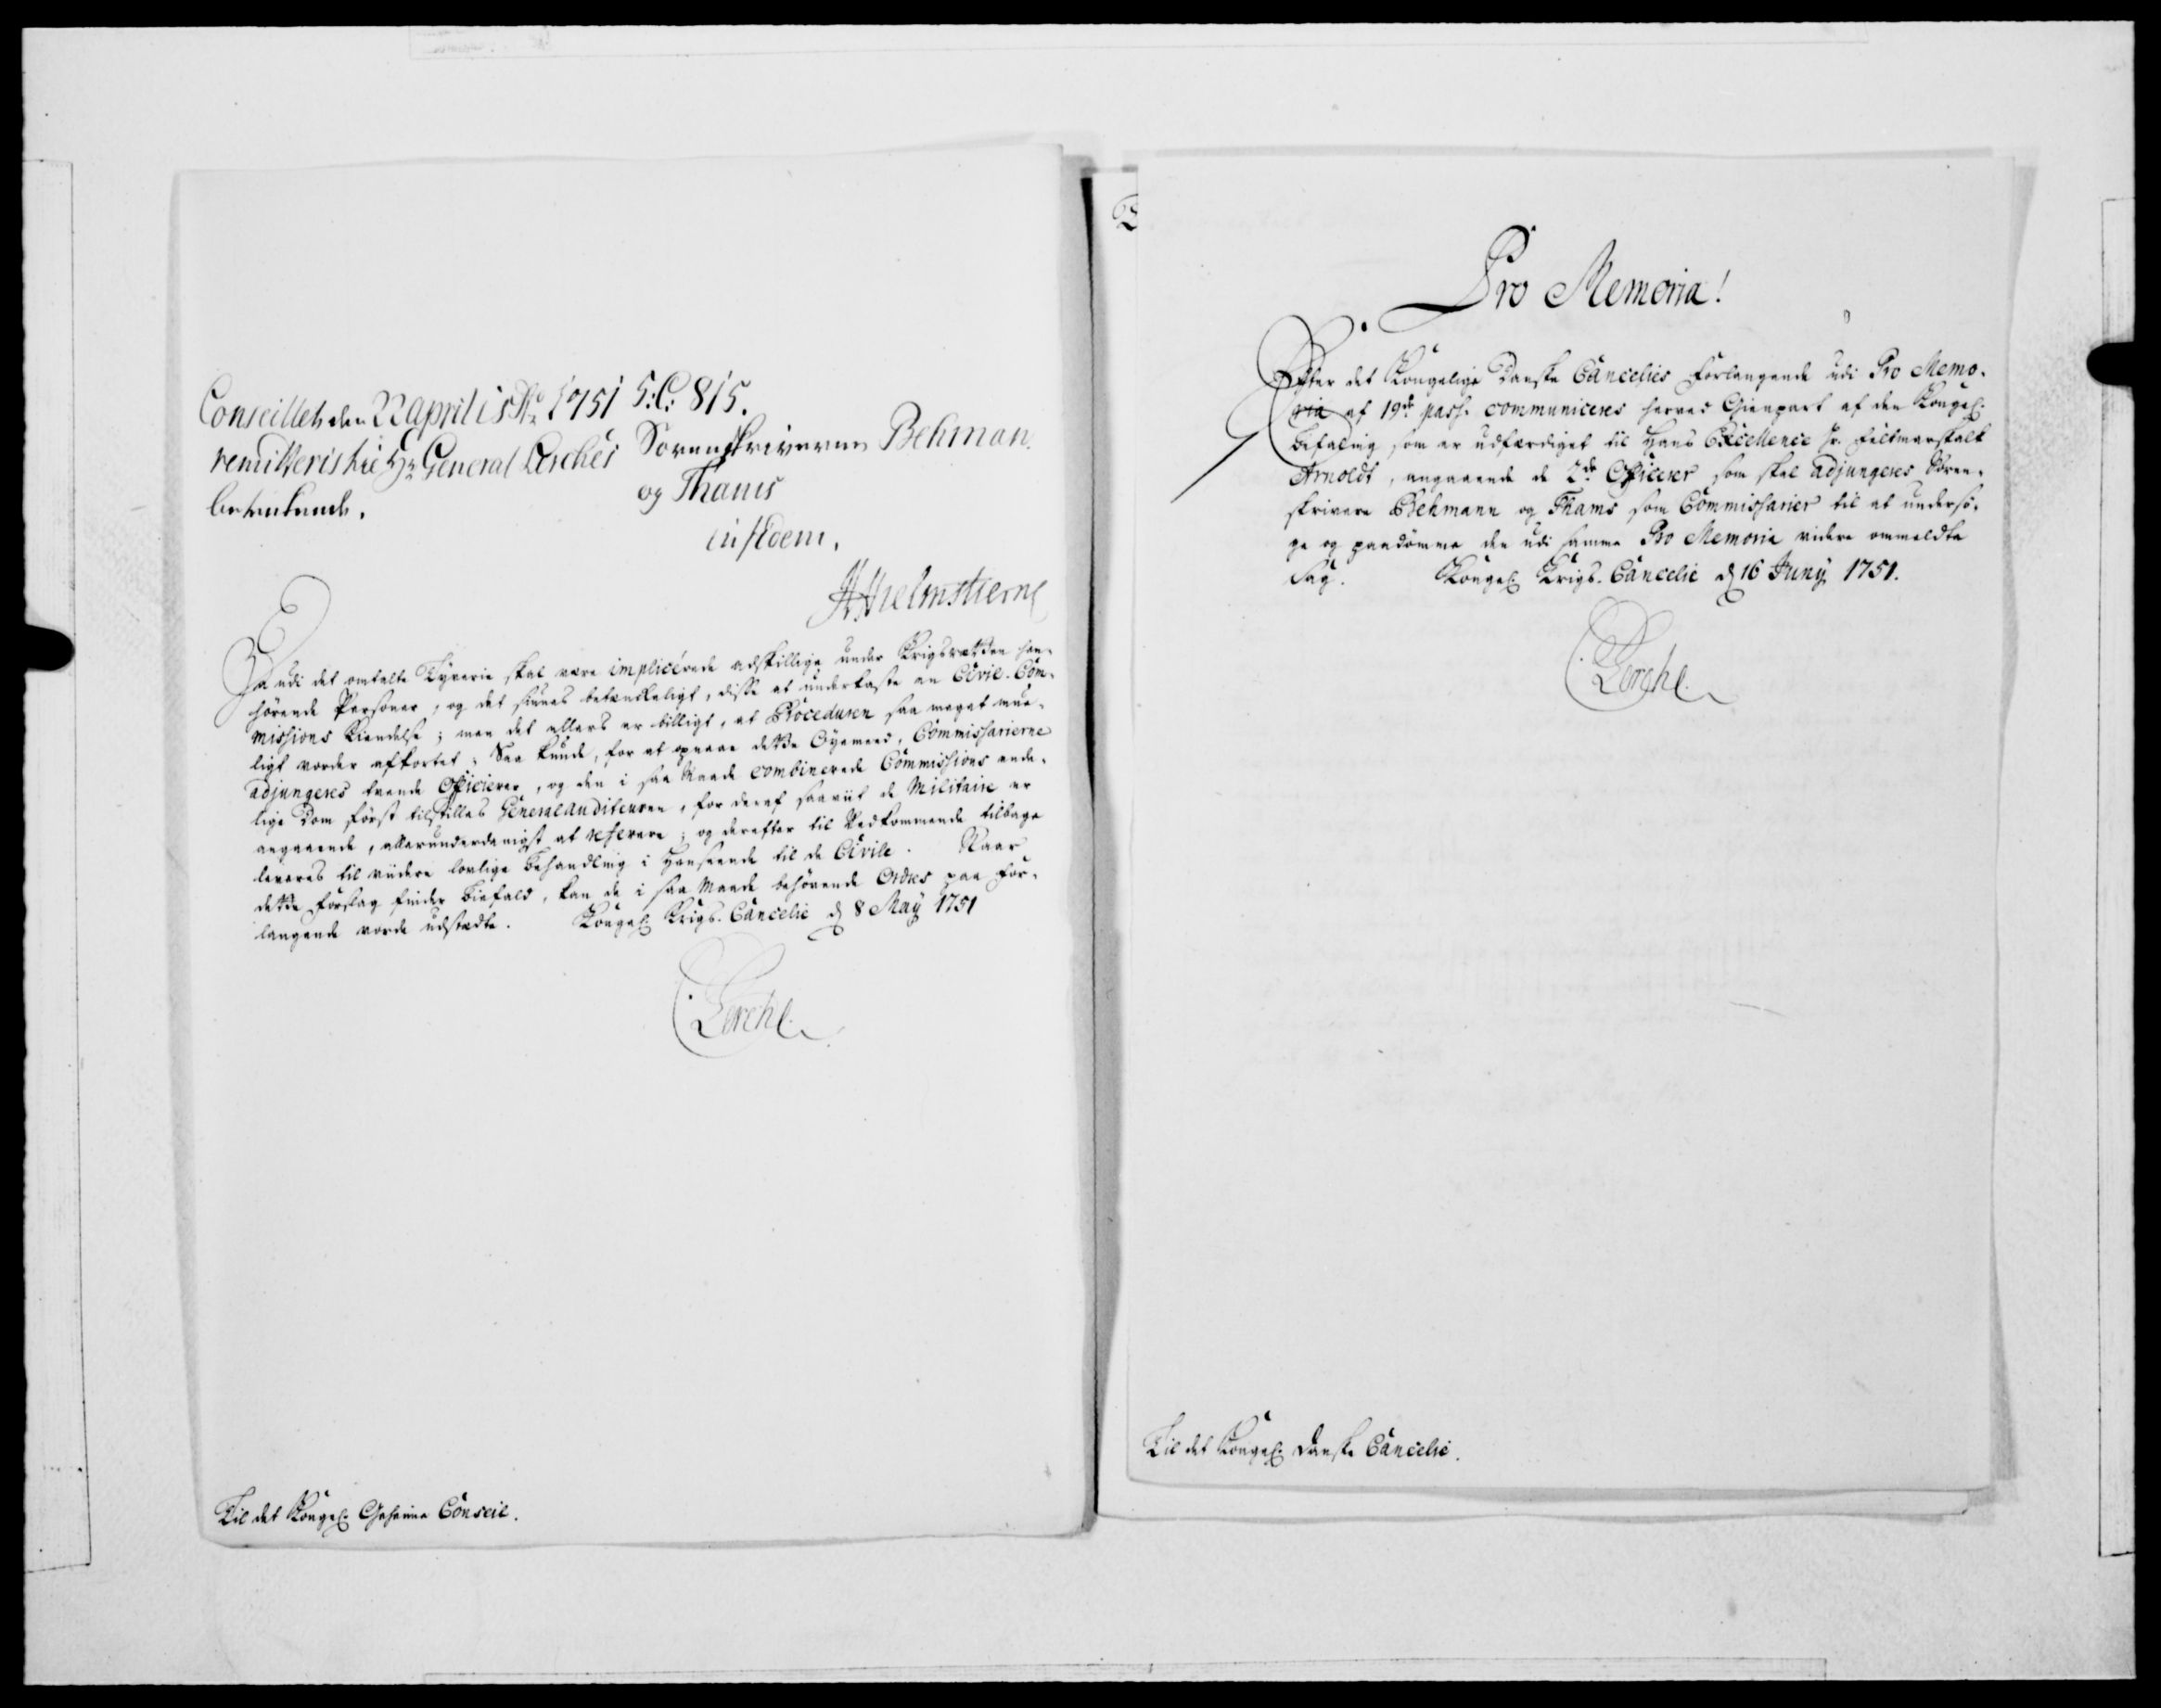 Conseillet den 22 aprilis Ao 1751
remitteris hie Hr General Lerches
betenkende.
S: C: 815.
Sorenskriverne Behman
og Thams
HHielmstierne
Da udi det omtalte Tyverie skal være implicérede adskillige under Krigsretten hen-
hörende Personer, og det siunes betænkeligt, disse at underkaste en Civil-Com-
missions Kiendelse; men det ellers er billigt, at Proceduren saa meget mue-
ligt vorder afkortet; Saa kunde, for at opnaae dette Öyemeed, Commissarierne
adjungeres tvende Officierer, og den i saa Maade combinerede Commissions ende-
lige Dom först tilstilles Generalauditeuren, for deraf saaviit de Militaire er
angaaende, allerunderdanigst at referere; og derefter til Vedkommende tilbage
leveres til viidere lovlige Behandling i Henseende til de Civile. Naar
dette Forslag finder Biefald, kan de i saa Maade behövende Ordres paa For-
langende vorde udstædte. Kongel: Krigs-Cancelie d 8 May 1751
Lerche
Til det Kongel: Geheime Conseil.
Pro Memoria!
Efter det Kongelige Danske Cancelies Forlangende udi Pro Memo-
ria af 19de pass: communiceres herved Gienpart af den Kongel:
Befaling, som er udfærdiget til Hans Excellence Hr. Feltmarskalk
Arnoldt, angaaende de 2de Officerer som skal adjungeres Soren-
skrivere Behmann og Thams som Commissarier til at undersö-
ge og paadömme den udi samme Pro Memoria videre ommeldte
Sag. Kongel: Krigs-Cancelie d 16 Juny 1751.
Lerche
Til det Kongel: Danske Cancelie.